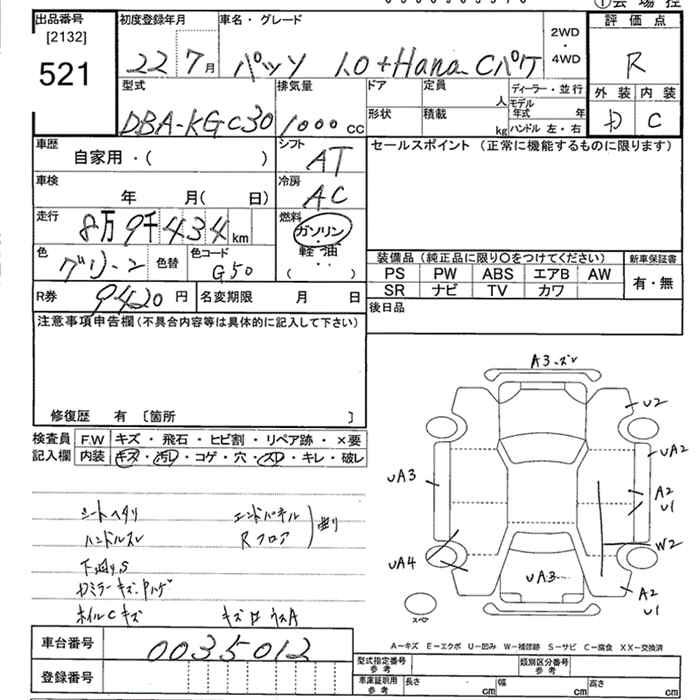 ①会場控
出品番号
[2132]
521
初度登録年月
22 7月
車名・グレード
パッソ 1.0+Hana Cパケ
2WD
・
4WD
評価点
R
外装 内装
D C
型式
DBA-KGC30
排気量
1000 CC
ドア
形状
定員 人
積載 kg
ディーラー・並行
モデル年式 年
ハンドル 左・右
車歴
自家用・( )
シフト
AT
セールスポイント (正常に機能するものに限ります)
車検
年 月( 日)
冷房
AC
走行
8万9千434km
燃料
ガソリン・
軽油
( ・・ )
色
グリーン
色替
色コード
G50
装備品 (純正品に限り○をつけてください)
新車保証書
PS PW ABS エアB AW
SR ナビ TV カワ
有・無
R券 9420円
名変期限 月 日
後日品
注意事項申告欄(不具合内容等は具体的に記入して下さい)
修復歴 有 〔箇所 〕
検査員記入欄
F.W キズ・飛石・ヒビ割・リペア跡・×要
内装 キズ・汚レ・コゲ・穴・スレ・キレ・破レ
シートヘタリ エンドパネル
ハンドルスレ Rフロア 曲リ
下廻リS
ホイルCキズ
A3
U2
UA2
UA3
A2
U1
W2
UA4
UA3
A2
U1
スペア
A-キズ E-エクボ U-凹み W-補修跡 S-サビ C-腐食 XX-交換済
車台番号
0035012
登録番号
型式指定番号
参考
類別区分番号
参考
車庫証明用
参考
長さ cm
幅 cm
高さ cm